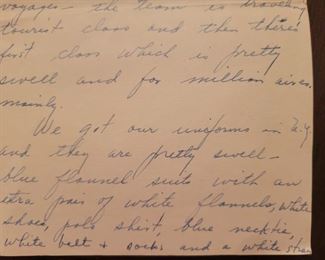 voyages - the team is traveling
tourist class and then there's
first class which is pretty
swell and for millionaires
mainly.
We got our uniforms in N.Y.
and they are pretty swell -
blue flannel suits with an
xtra pair of white flannels, white
shoes, polo shirt, blue necktie,
white belt + socks and a white straw